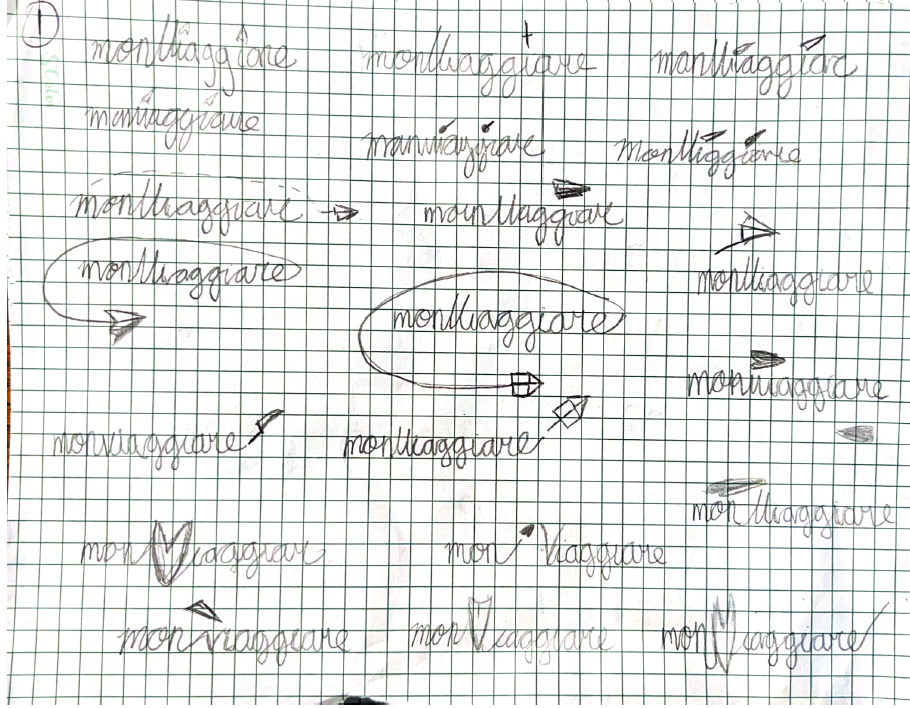 1
monViaggiare monViaggiare monViaggiare
monviaggiare monviaggiare monViaggiare
monViaggiare monViaggiare
monViaggiare monViaggiare
monViaggiare
monviaggiare
monviaggiare monViaggiare
monViaggiare
monViaggiar mon Viaggiare
monviaggiare monViaggiare monViaggiare